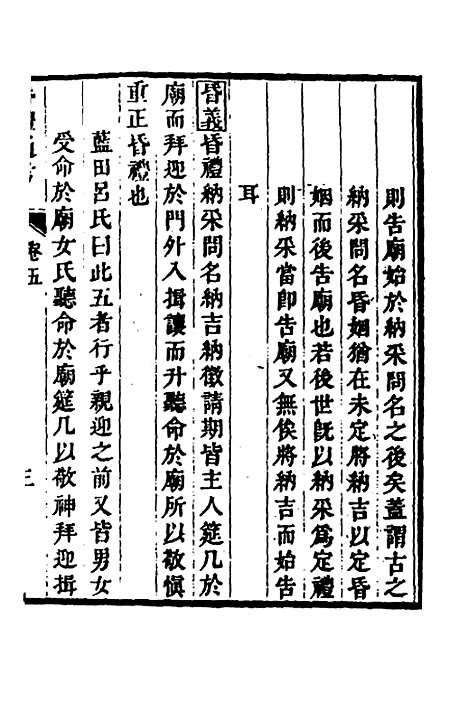 則告廟始於納采問名之後矣蓋謂古之
納采問名昏姻猶在未定將納吉以定昏
姻而後告廟也若後世旣以納采爲定禮
則納采當卽告廟又無俟將納吉而始告
耳
昏義昏禮納采問名納吉納徵請期皆主人筵几於
廟而拜迎於門外入揖讓而升聽命於廟所以敬愼
重正昏禮也
藍田呂氏曰此五者行乎親迎之前又皆男女
受命於廟女氏聽命於廟筵几以敬神拜迎揖
卷五
三